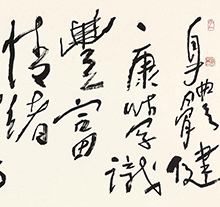 身體健
康學識
豐富
情緒